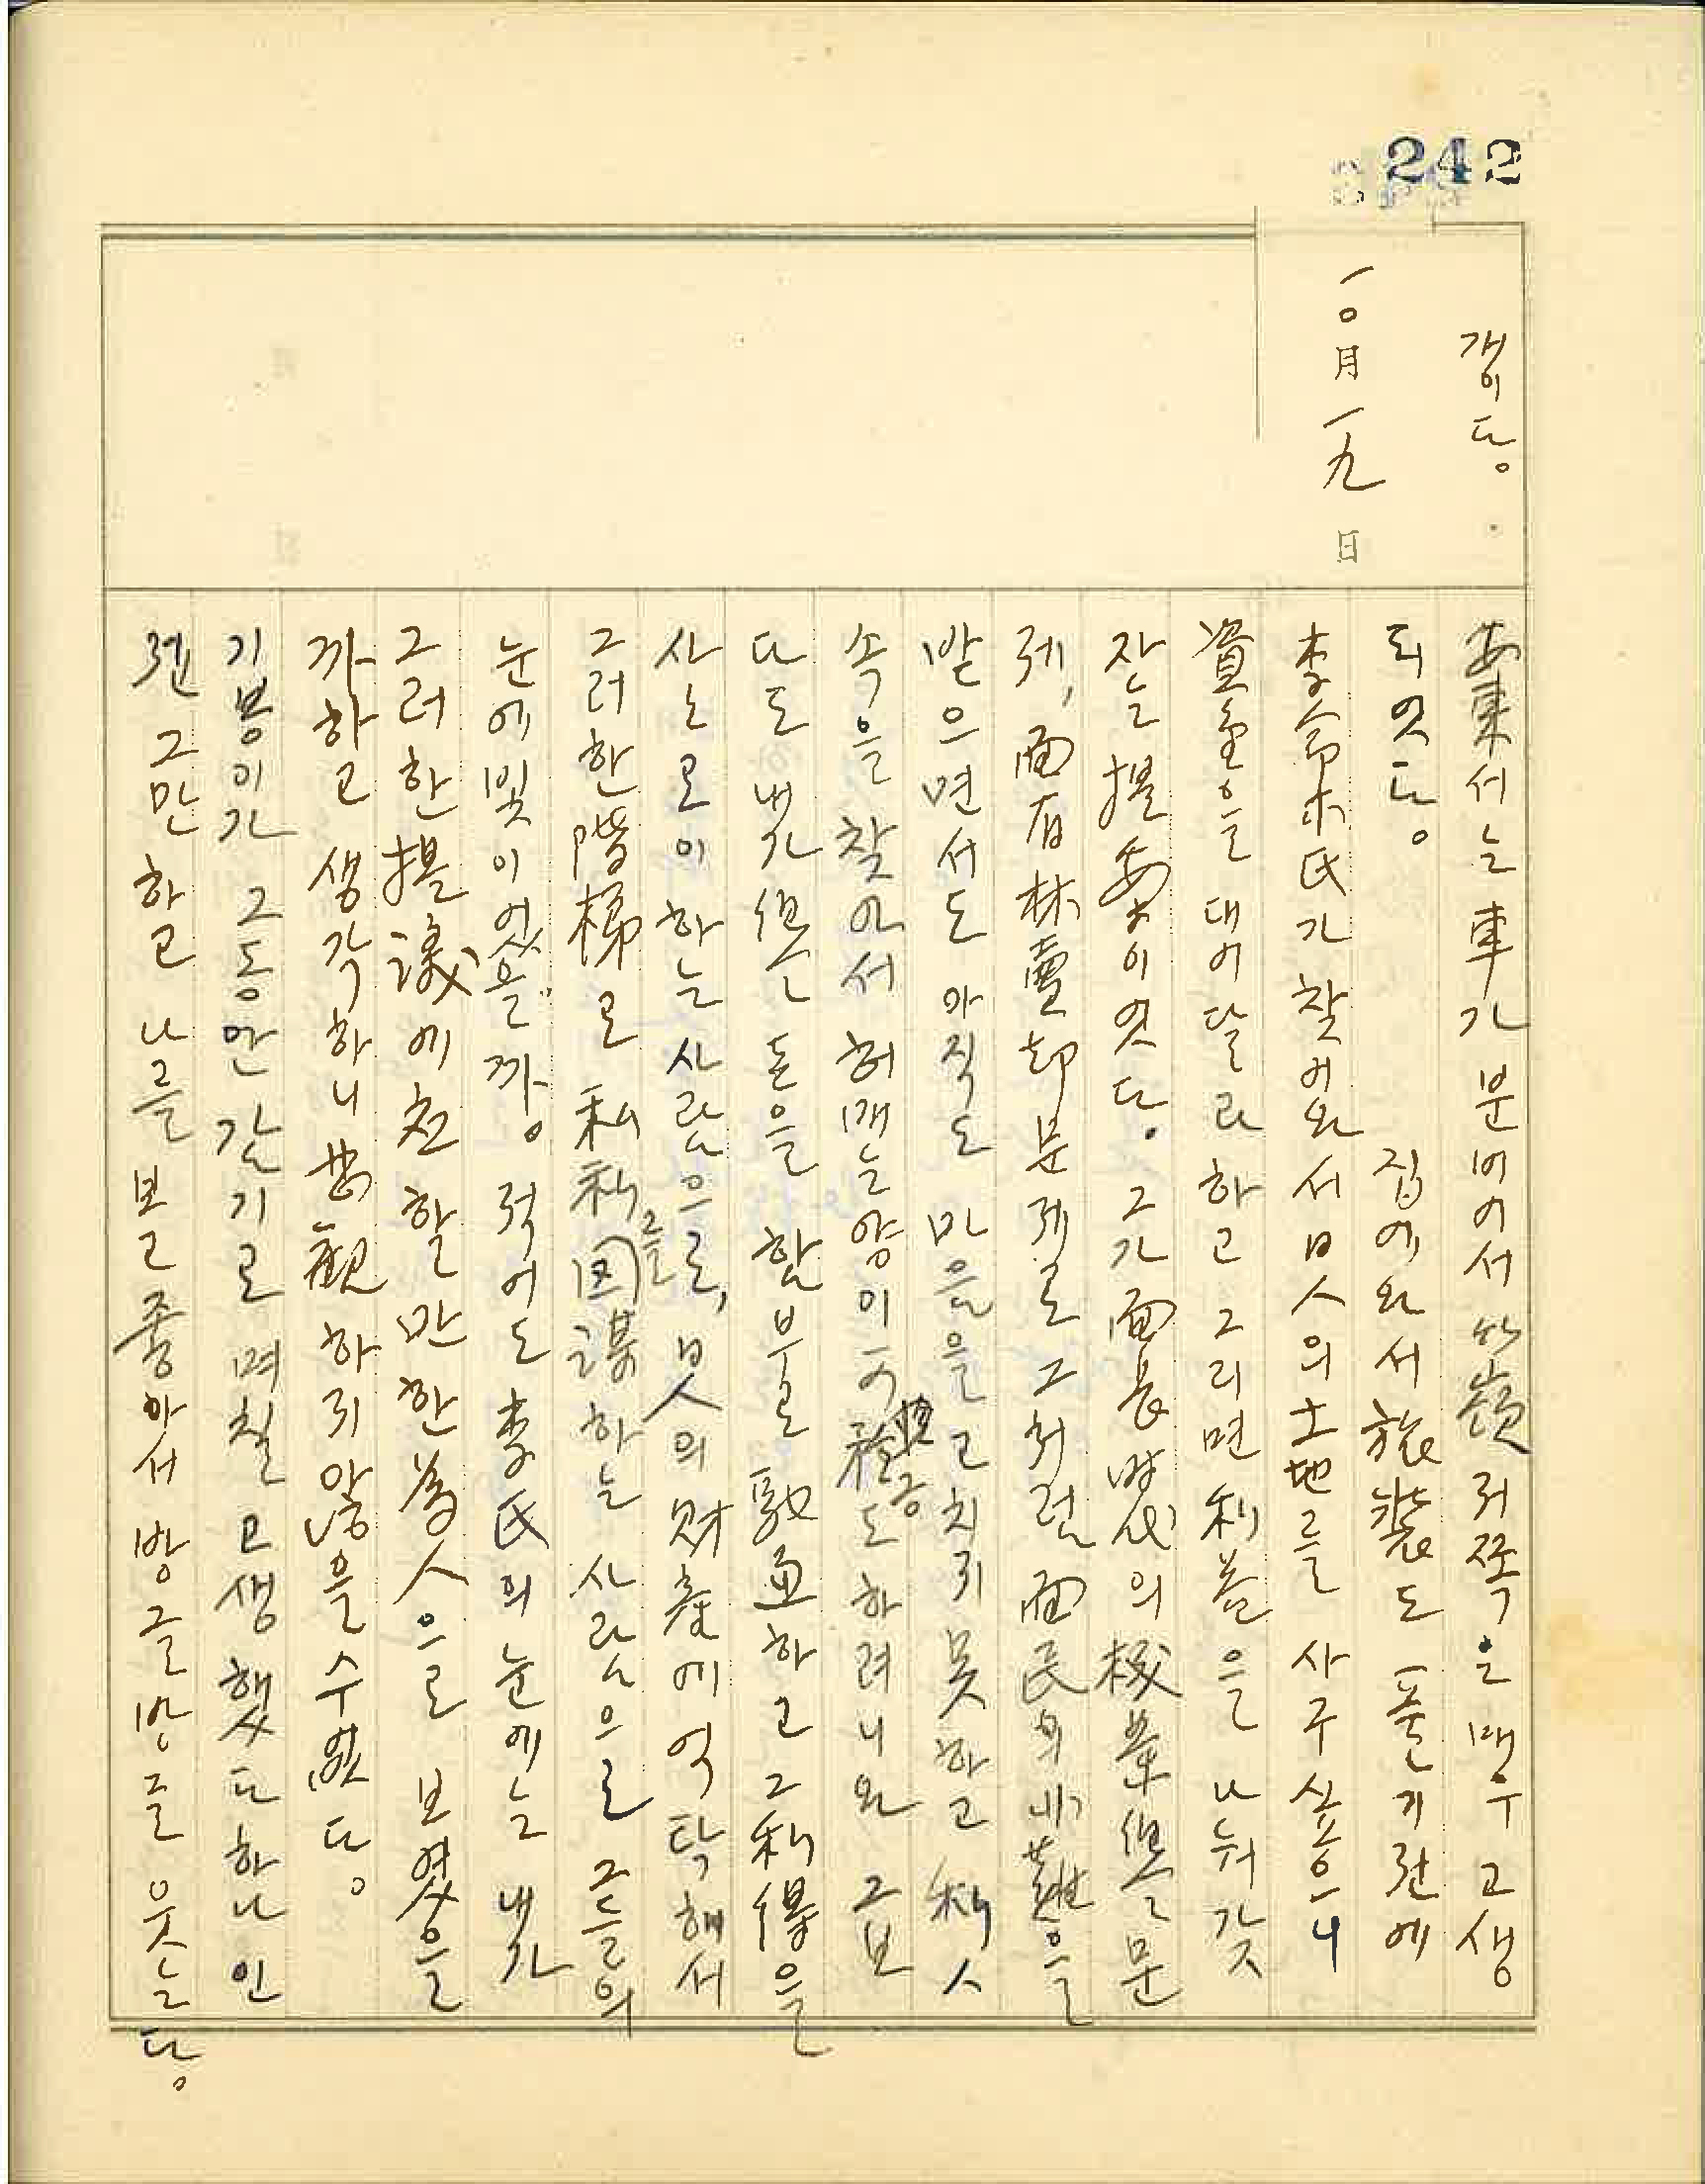 242
갱이다。
一〇月一九日
安東서는 車가 분비어서 竹嶺 저쪽은 매우 고생
되엿다。 집에 와서 旅裝도 풀기 전에
李命求氏가 찾어와서 日人의 土地를 사구 싶으니
資金을 대어 달라 하고 그리면 利益을 나눠 갖
자는 提案이엿다。 그가 面長 時代의 桜葉 사건 문
제, 面有林賣却 문제로 그처럼 面民의 非難을
받으면서도 아직도 마음을 고치지 못하고 私人
속을 찾어서 허매는 양이 可憐도 하려니와 그보
다도 내가 많은 돈을 함부로 融通하고 그 利得을
사는 로이 하는 사람으로, 日人의 財産에 억탁해서
그러한 階梯로 私利를 図謀하는 사람으로 그들의
눈에 빛이 었을까。 적어도 李氏의 눈에는 내가
그러한 提議에 응할 만한 爲人으로 보였을
까 하고 생각하니 悲觀하지 않을 수 없다。
기봉이가 그동안 감기로 며칠 고생했다 하나 인
젠 그만하고 나를 보고 좋아서 방글방글 웃는다。